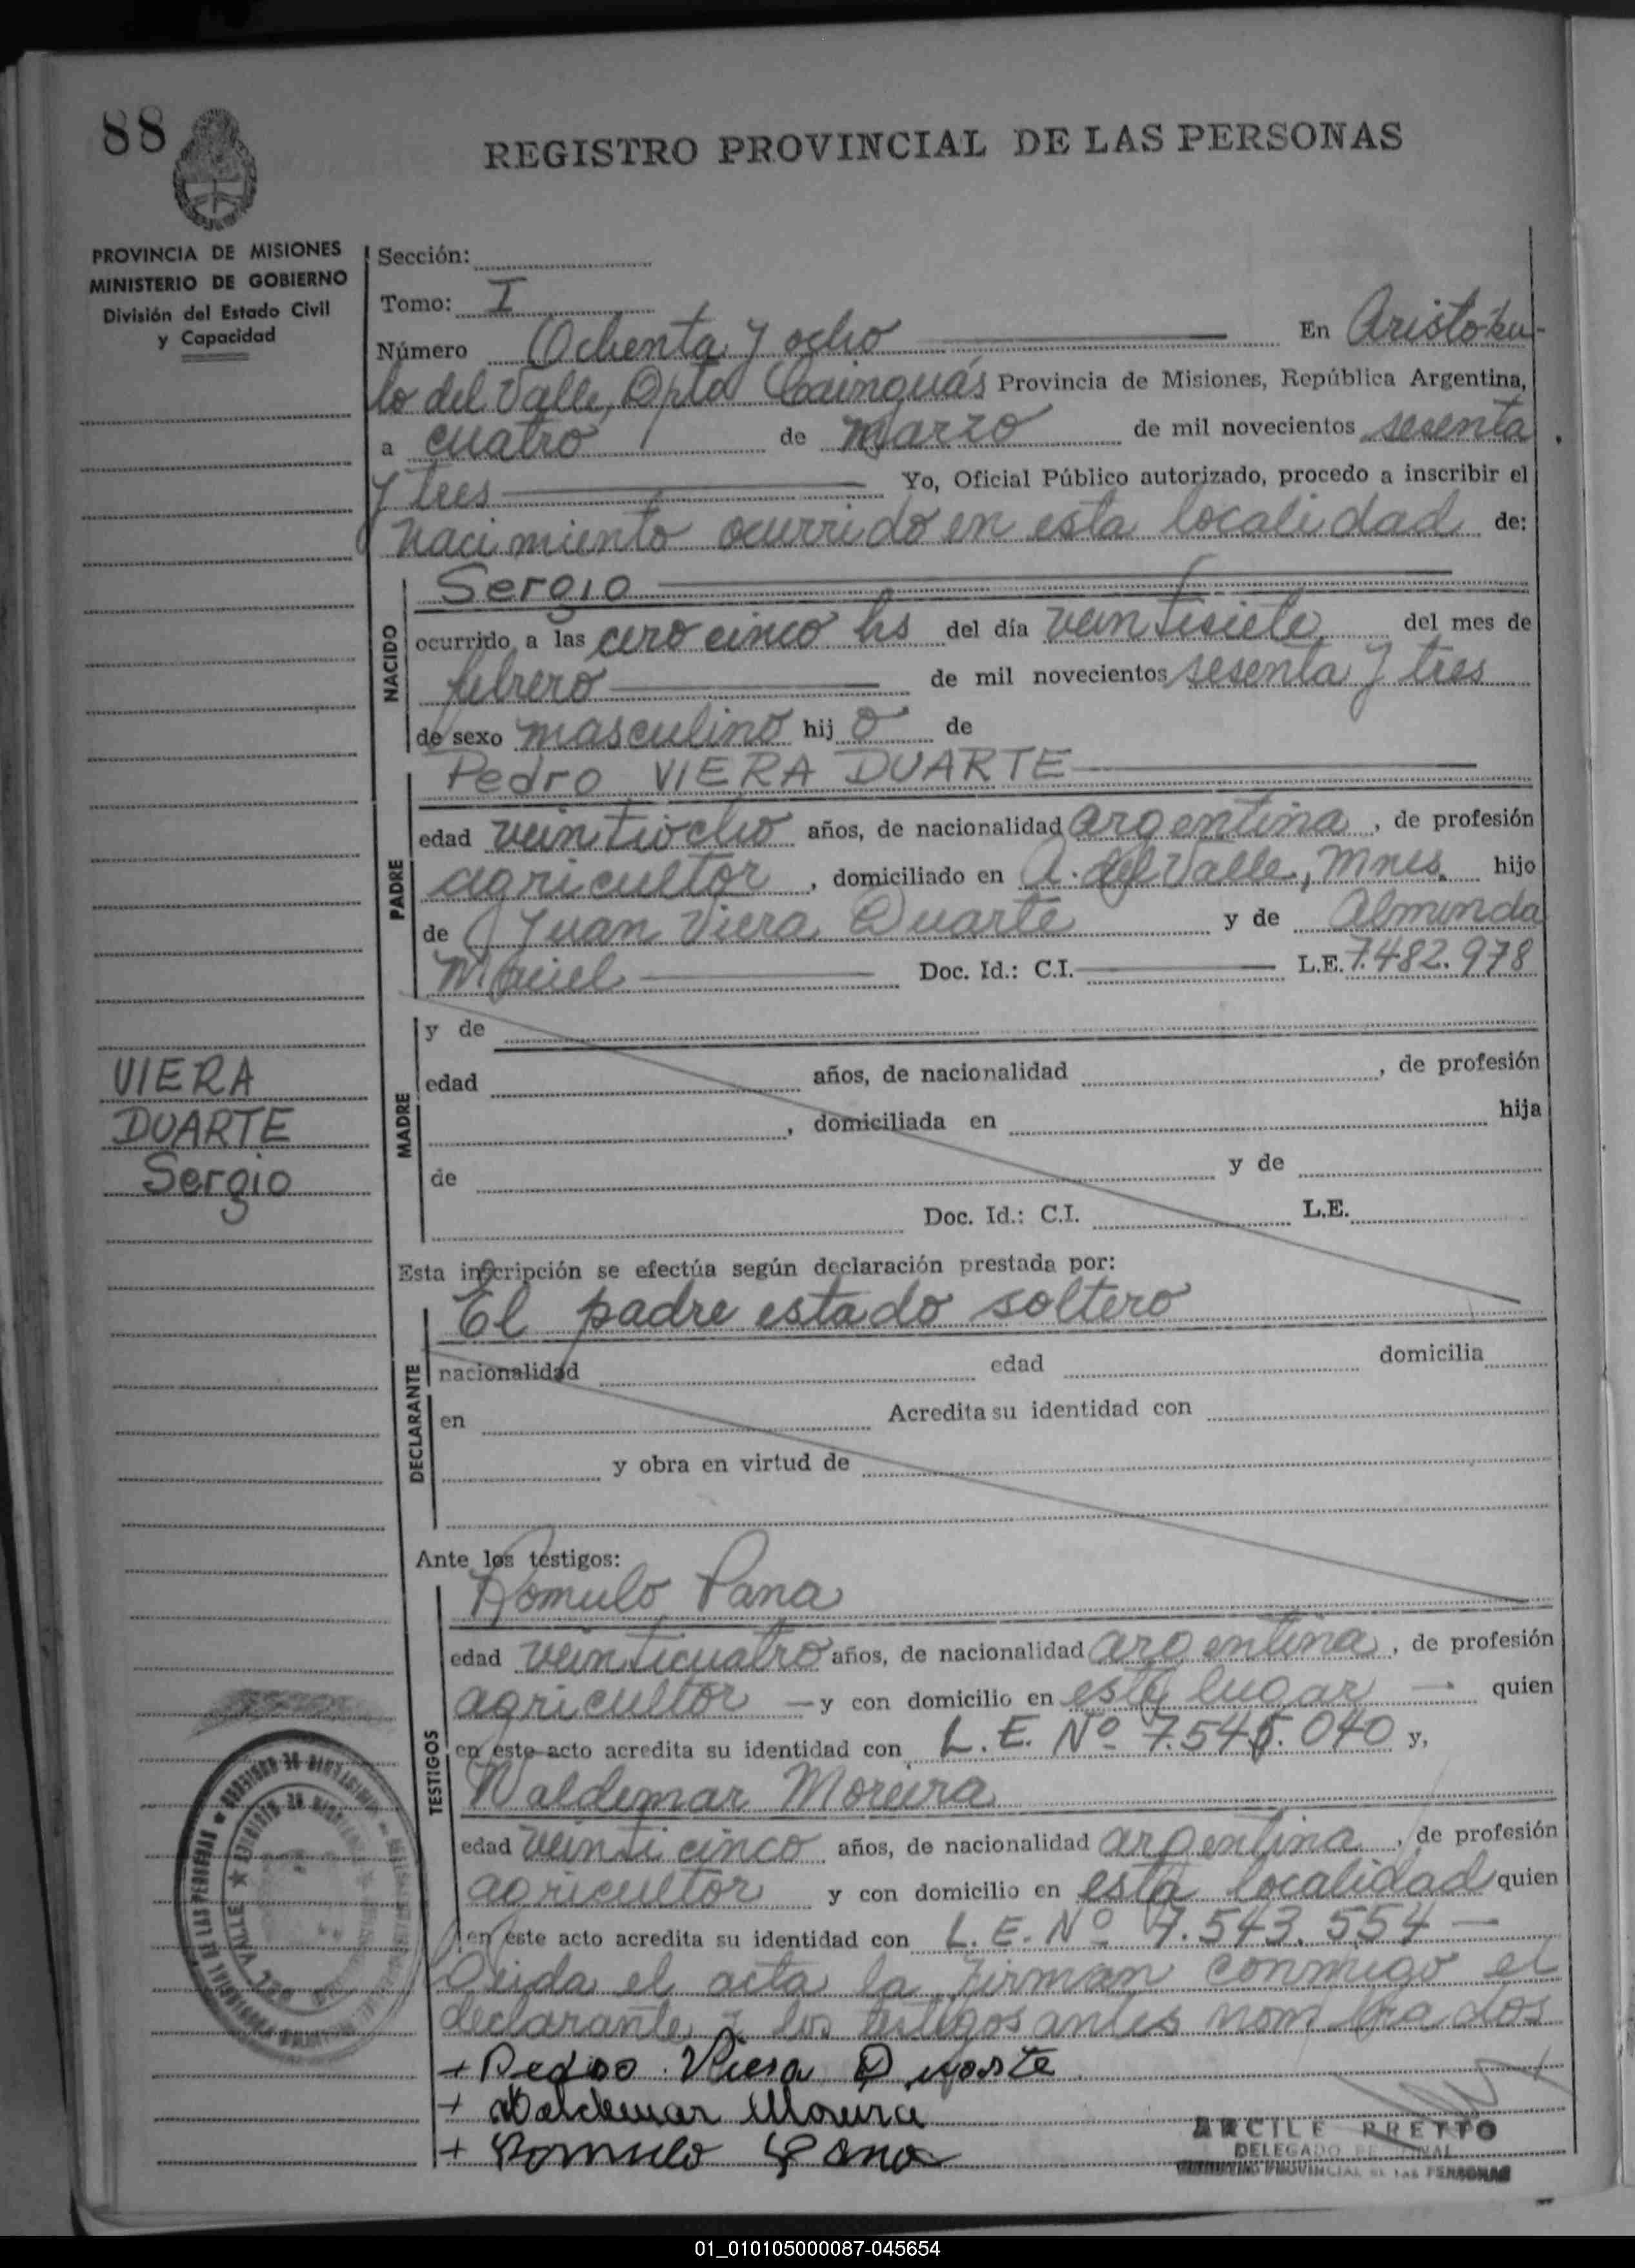 88
REGISTRO PROVINCIAL DE LAS PERSONAS
PROVINCIA DE MISIONES
MINISTERIO DE GOBIERNO
División del Estado Civil
y Capacidad
Sección:
Tomo: I
Número Ochenta y ocho En Aristóbu-
lo del Valle, Dpto Cainguás Provincia de Misiones, República Argentina,
a cuatro de marzo de mil novecientos sesenta
y tres Yo, Oficial Público autorizado, procedo a inscribir el
nacimiento ocurrido en esta localidad de:
NACIDO
Sergio
ocurrido a las cero cinco hs del día veintisiete del mes de
febrero de mil novecientos sesenta y tres
de sexo masculino hij o de
PADRE
Pedro VIERA DUARTE
edad veintiocho años, de nacionalidad argentina, de profesión
agricultor, domiciliado en A. del Valle, Mnes. hijo
de Juan Viera Duarte y de Almunda
Maciel Doc. Id.: C.I. L.E. 7.482.978
MADRE
y de
edad años, de nacionalidad , de profesión
, domiciliada en hija
de y de
Doc. Id.: C.I. L.E.
VIERA
DUARTE
Sergio
Esta inscripción se efectúa según declaración prestada por:
DECLARANTE
El padre estado soltero
nacionalidad edad domicilia
en Acredita su identidad con
y obra en virtud de
Ante los testigos:
TESTIGOS
Romulo Pana
edad veinticuatro años, de nacionalidad argentina, de profesión
agricultor — y con domicilio en este lugar — quien
en este acto acredita su identidad con L.E. Nº 7.545.040 y,
Waldemar Moreira
edad veinticinco años, de nacionalidad argentina, de profesión
agricultor y con domicilio en esta localidad quien
en este acto acredita su identidad con L.E. Nº 7.543.554 —
Leida el acta la firman conmigo el
declarante y los testigos antes nombrados
+ Pedro Viera Duarte
+ Waldemar Moreira
+ Romulo Pana
ARCILE BRETTO
DELEGADO
PROVINCIAL DE LAS PERSONAS
01_010105000087-045654